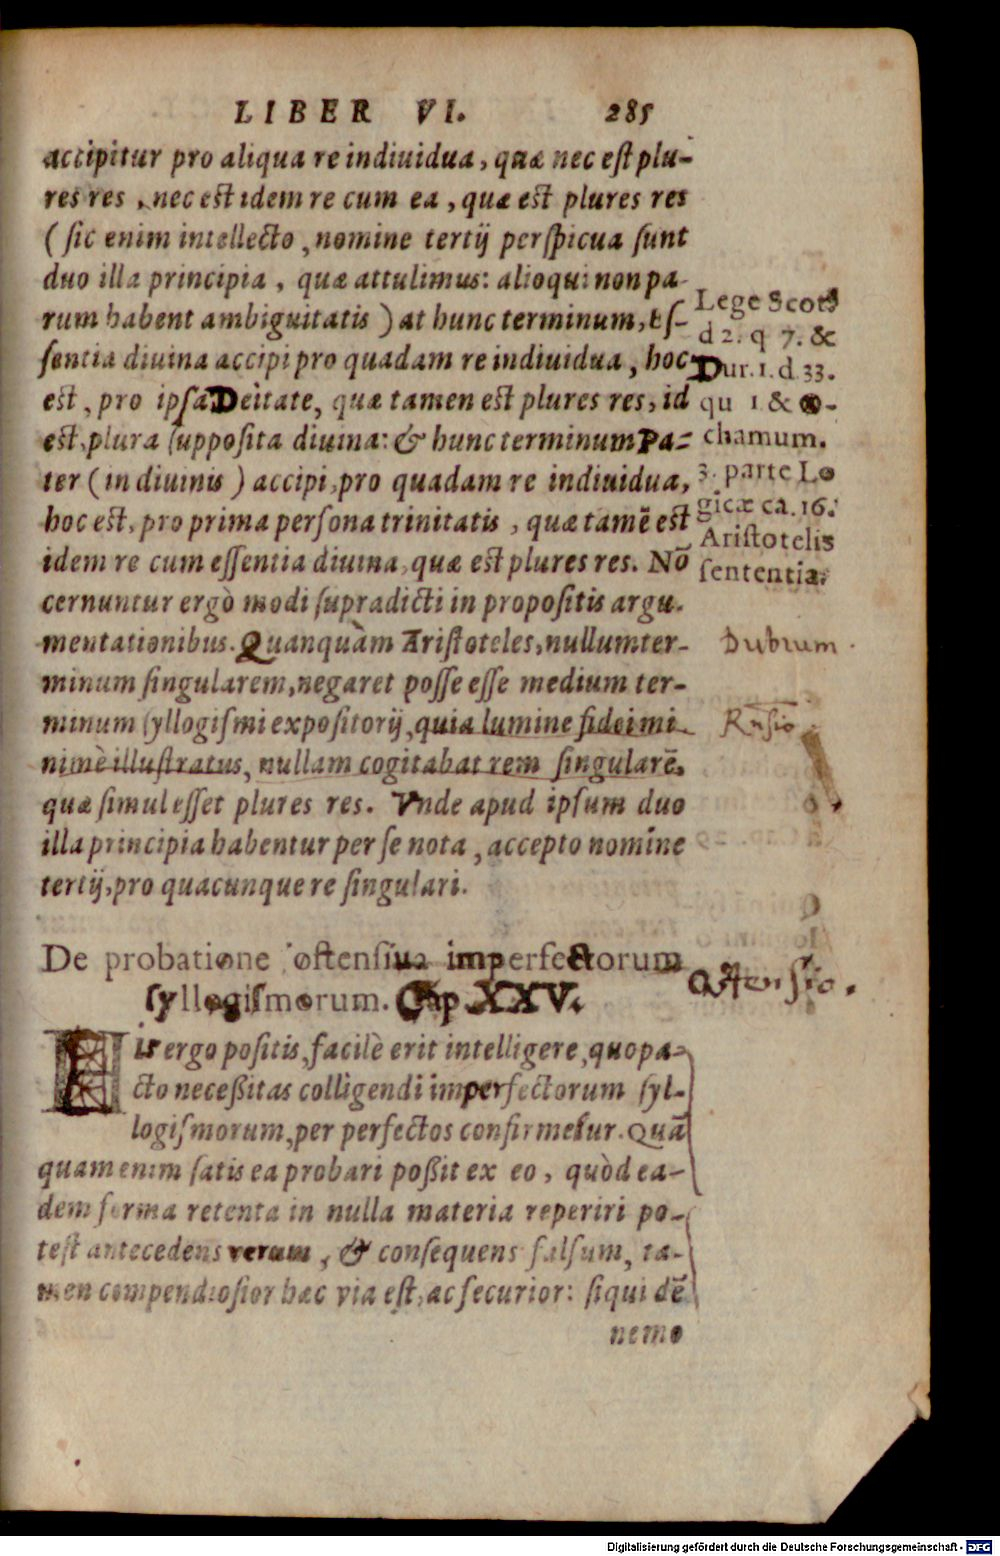 LIBER VI. 285
accipitur pro aliqua re indiuidua, quæ nec est plu-
res res, nec est idem re cum ea, quæ est plures res
(sic enim intellecto, nomine tertij perspicua sunt
duo illa principia, quæ attulimus: alioqui non pa-
rum habent ambiguitatis) at hunc terminum, Es-
sentia diuina accipi pro quadam re indiuidua, hoc
est, pro ipsa Deitate, quæ tamen est plures res, id
est, plura supposita diuina: & hunc terminum Pa-
ter (in diuinis) accipi, pro quadam re indiuidua,
hoc est, pro prima persona trinitatis, quæ tamē est
idem re cum essentia diuina, quæ est plures res. Nō
cernuntur ergò modi supradicti in propositis argu-
mentationibus. Quanquàm Aristoteles, nullum ter-
minum singularem, negaret posse esse medium ter-
minum syllogismi expositorij, quia lumine fidei mi-
nimè illustratus, nullam cogitabat rem singularē,
quæ simul esset plures res. Vnde apud ipsum duo
illa principia habentur per se nota, accepto nomine
tertij, pro quacunque re singulari.
Lege Scotū
d 2. q 7. &
Dur. 1. d 33.
qu 1 & O-
chamum.
3. parte Lo
gicæ ca. 16.
Aristotelis
sententia.
Dubium.
Ratio
De probatione ostensiua imperfectorum
syllogismorum. Cap. XXV.
Ostensio.
Eis ergo positis, facilè erit intelligere, quo pa-
cto neceßitas colligendi imperfectorum syl-
logismorum, per perfectos confirmetur. Quā
quam enim satis ea probari poßit ex eo, quòd ea-
dem forma retenta in nulla materia reperiri po-
test antecedens verum, & consequens falsum, ta-
men compendiosior hæc via est, ac securior: siqui dē
nemo
Digitalisierung gefördert durch die Deutsche Forschungsgemeinschaft - DFG